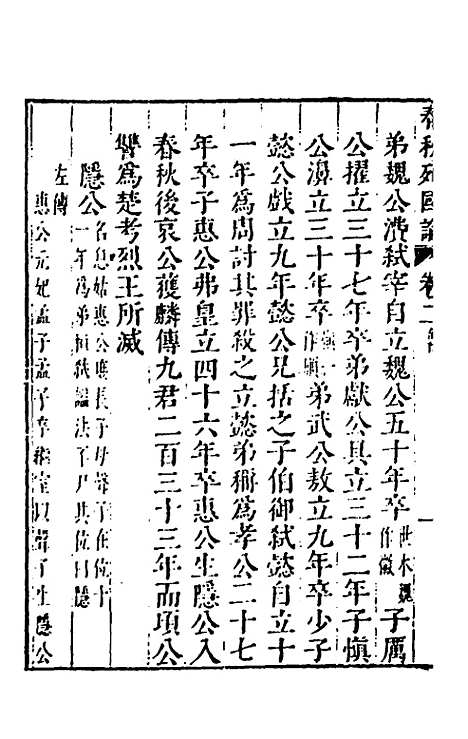 春秋列國論 卷二
弟魏公㵒弒宰自立魏公五十年卒世本魏作微子厲
公擢立三十七年卒弟獻公具立三十二年子愼
公濞立三十年卒愼一作順弟武公敖立九年卒少子
懿公戲立九年懿公兄括之子伯御弒懿自立十
一年為周討其罪殺之立懿弟稱為孝公二十七
年卒子惠公弗皇立四十六年卒惠公生隱公入
春秋後哀公獲麟傳九君二百三十三年而頃公
讐為楚考烈王所滅
隱公名息姑惠公庶長子母聲子在位十一年為弟桓弒諡法不尸其位曰隱
左傳
惠公元妃孟子孟子卒繼室以聲子生隱公